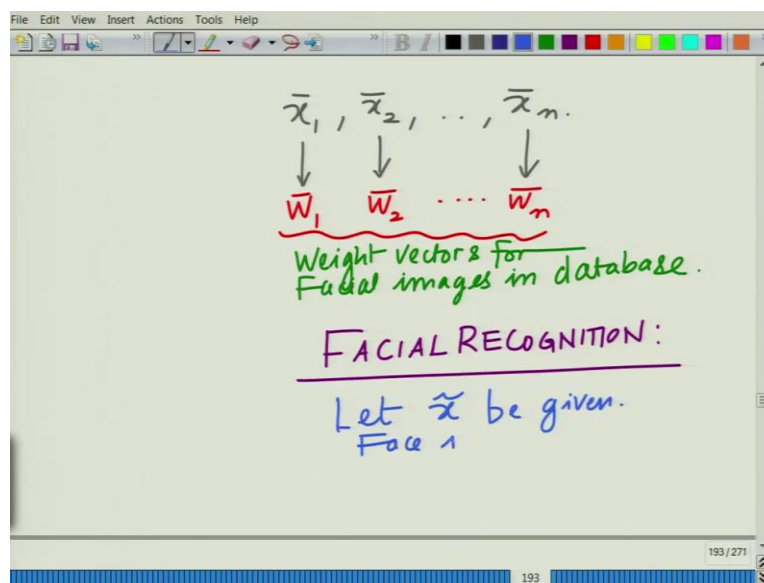 File Edit View Insert Actions Tools Help
B I
x̄₁, x̄₂, .., x̄ₙ.
↓ ↓ ↓
w̄₁ w̄₂ .... w̄ₙ
Weight vectors for
Facial images in database.
FACIAL RECOGNITION:
Let x̃ be given.
Face
193/271
193